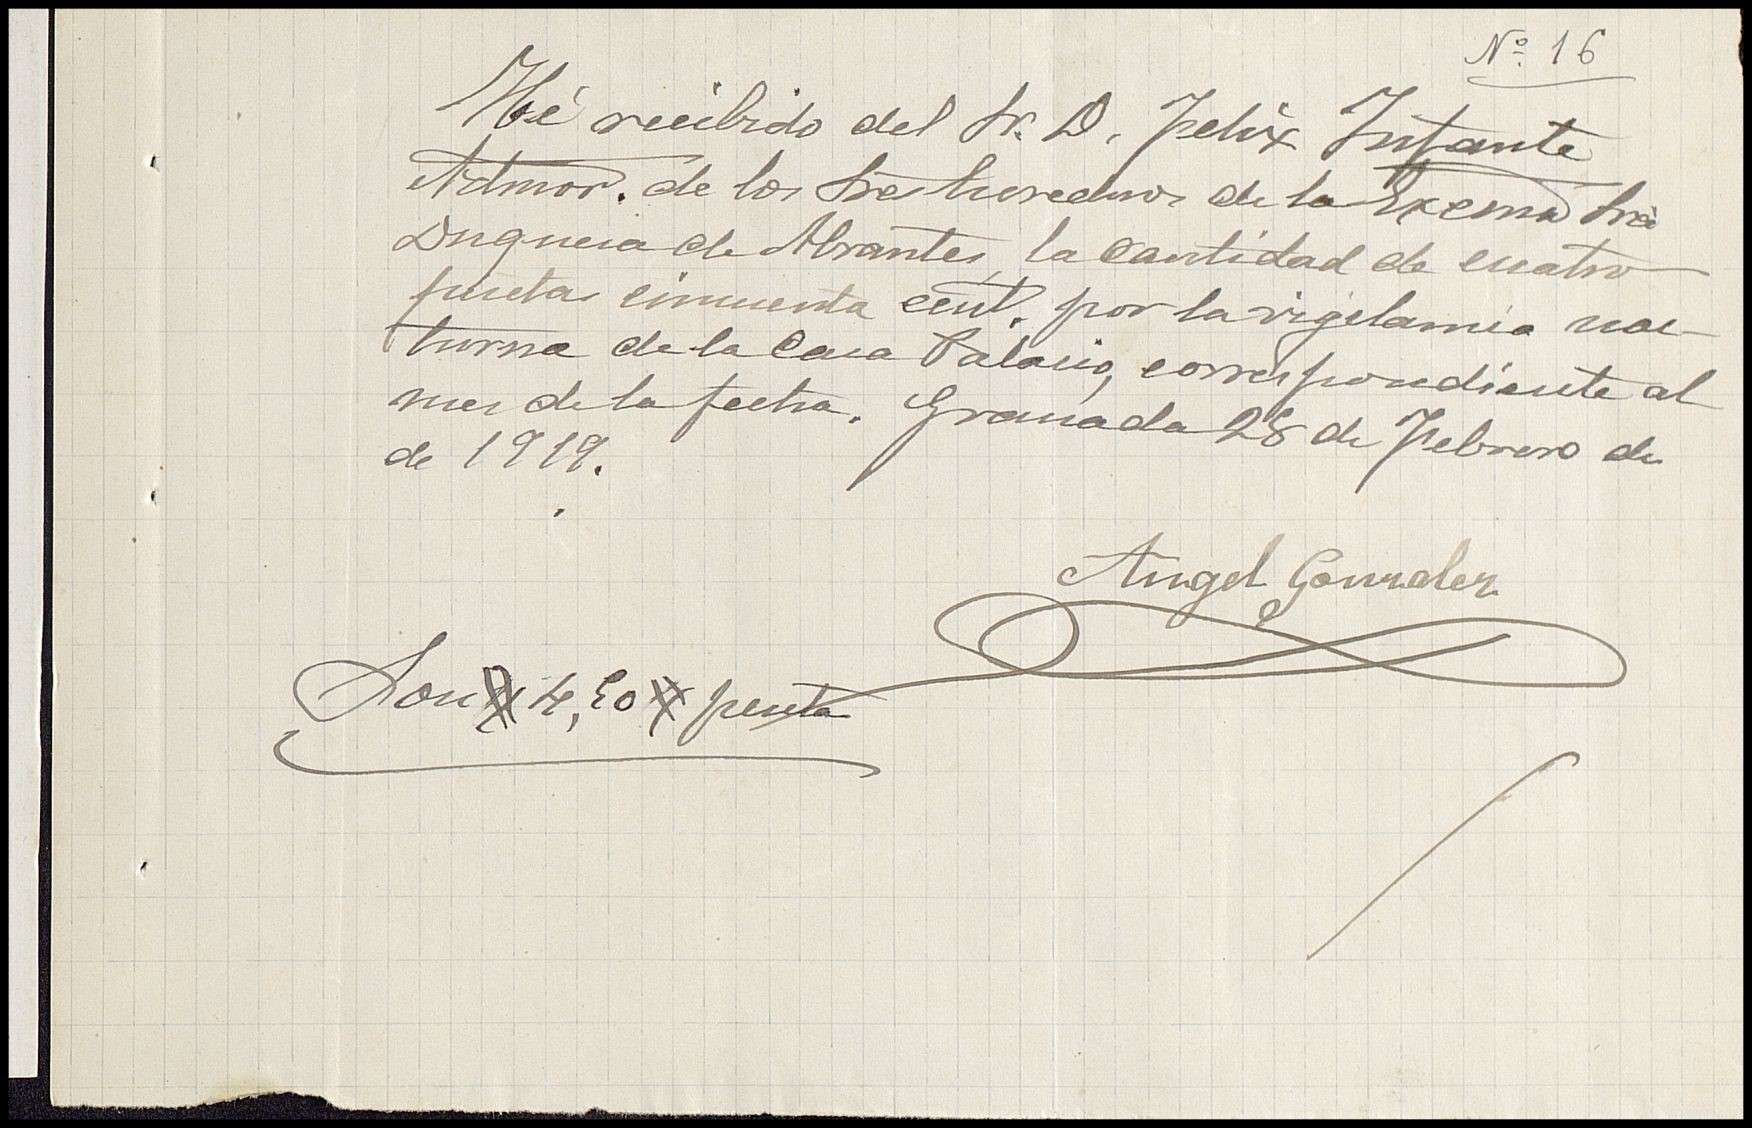 Nº 16
Hé recibido del Sr. D. Felix Infante
Admor. de los Sres herederos de la Excma Sra
Duquesa de Abrantes, la cantidad de cuatro
pesetas cincuenta cent. por la vigilancia noc-
turna de la Casa Palacio, correspondiente al
mes de la fecha. Granada 28 de Febrero de
de 1919.
Angel Gonzalez
Son # 4,50 # pesetas